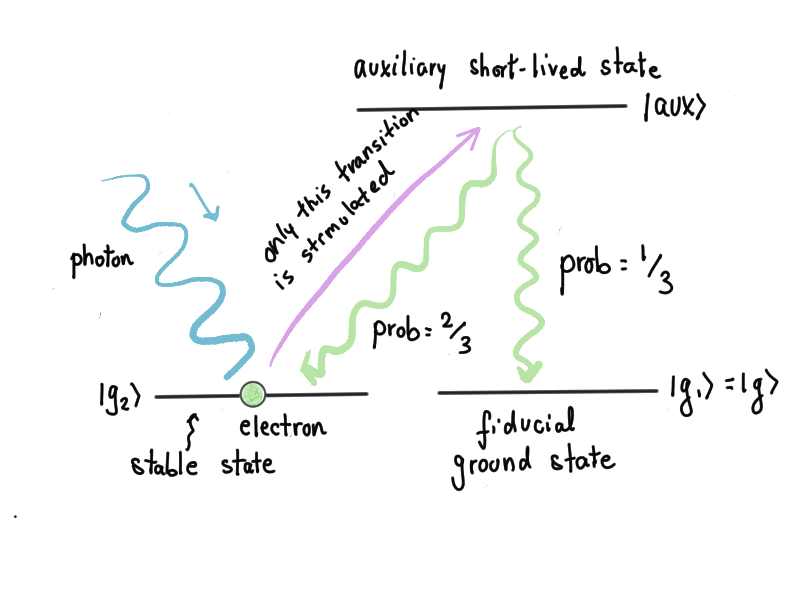 auxiliary short-lived state
|aux⟩
only this transition
is stimulated
photon
prob = 1/3
prob = 2/3
|g₂⟩
|g₁⟩ = |g⟩
electron
stable state
fiducial
ground state